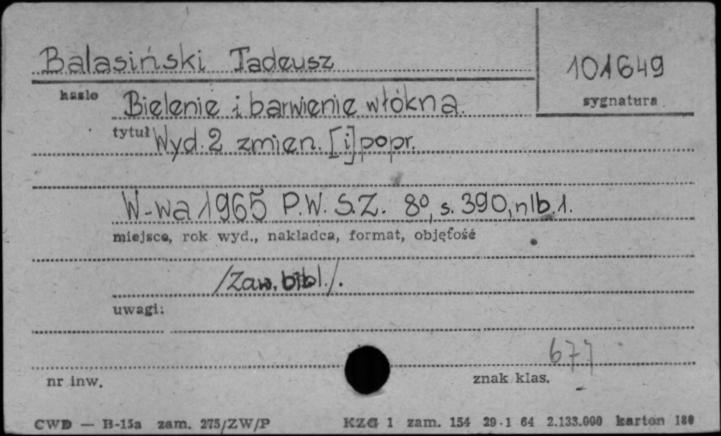 Balasiński Tadeusz
101649
hasło
sygnatura
Bielenie i barwienie włókna.
tytuł Wyd. 2 zmien. [i] popr.
W-wa 1965 P.W.S.Z. 8°, s. 390, nlb. 1.
miejsce, rok wyd., nakładca, format, objętość
/Zaw. bibl./.
uwagi:
677
nr inw.
znak klas.
CWD — B-15a zam. 275/ZW/P KZG 1 zam. 154 29·1 64 2.133.000 karton 180